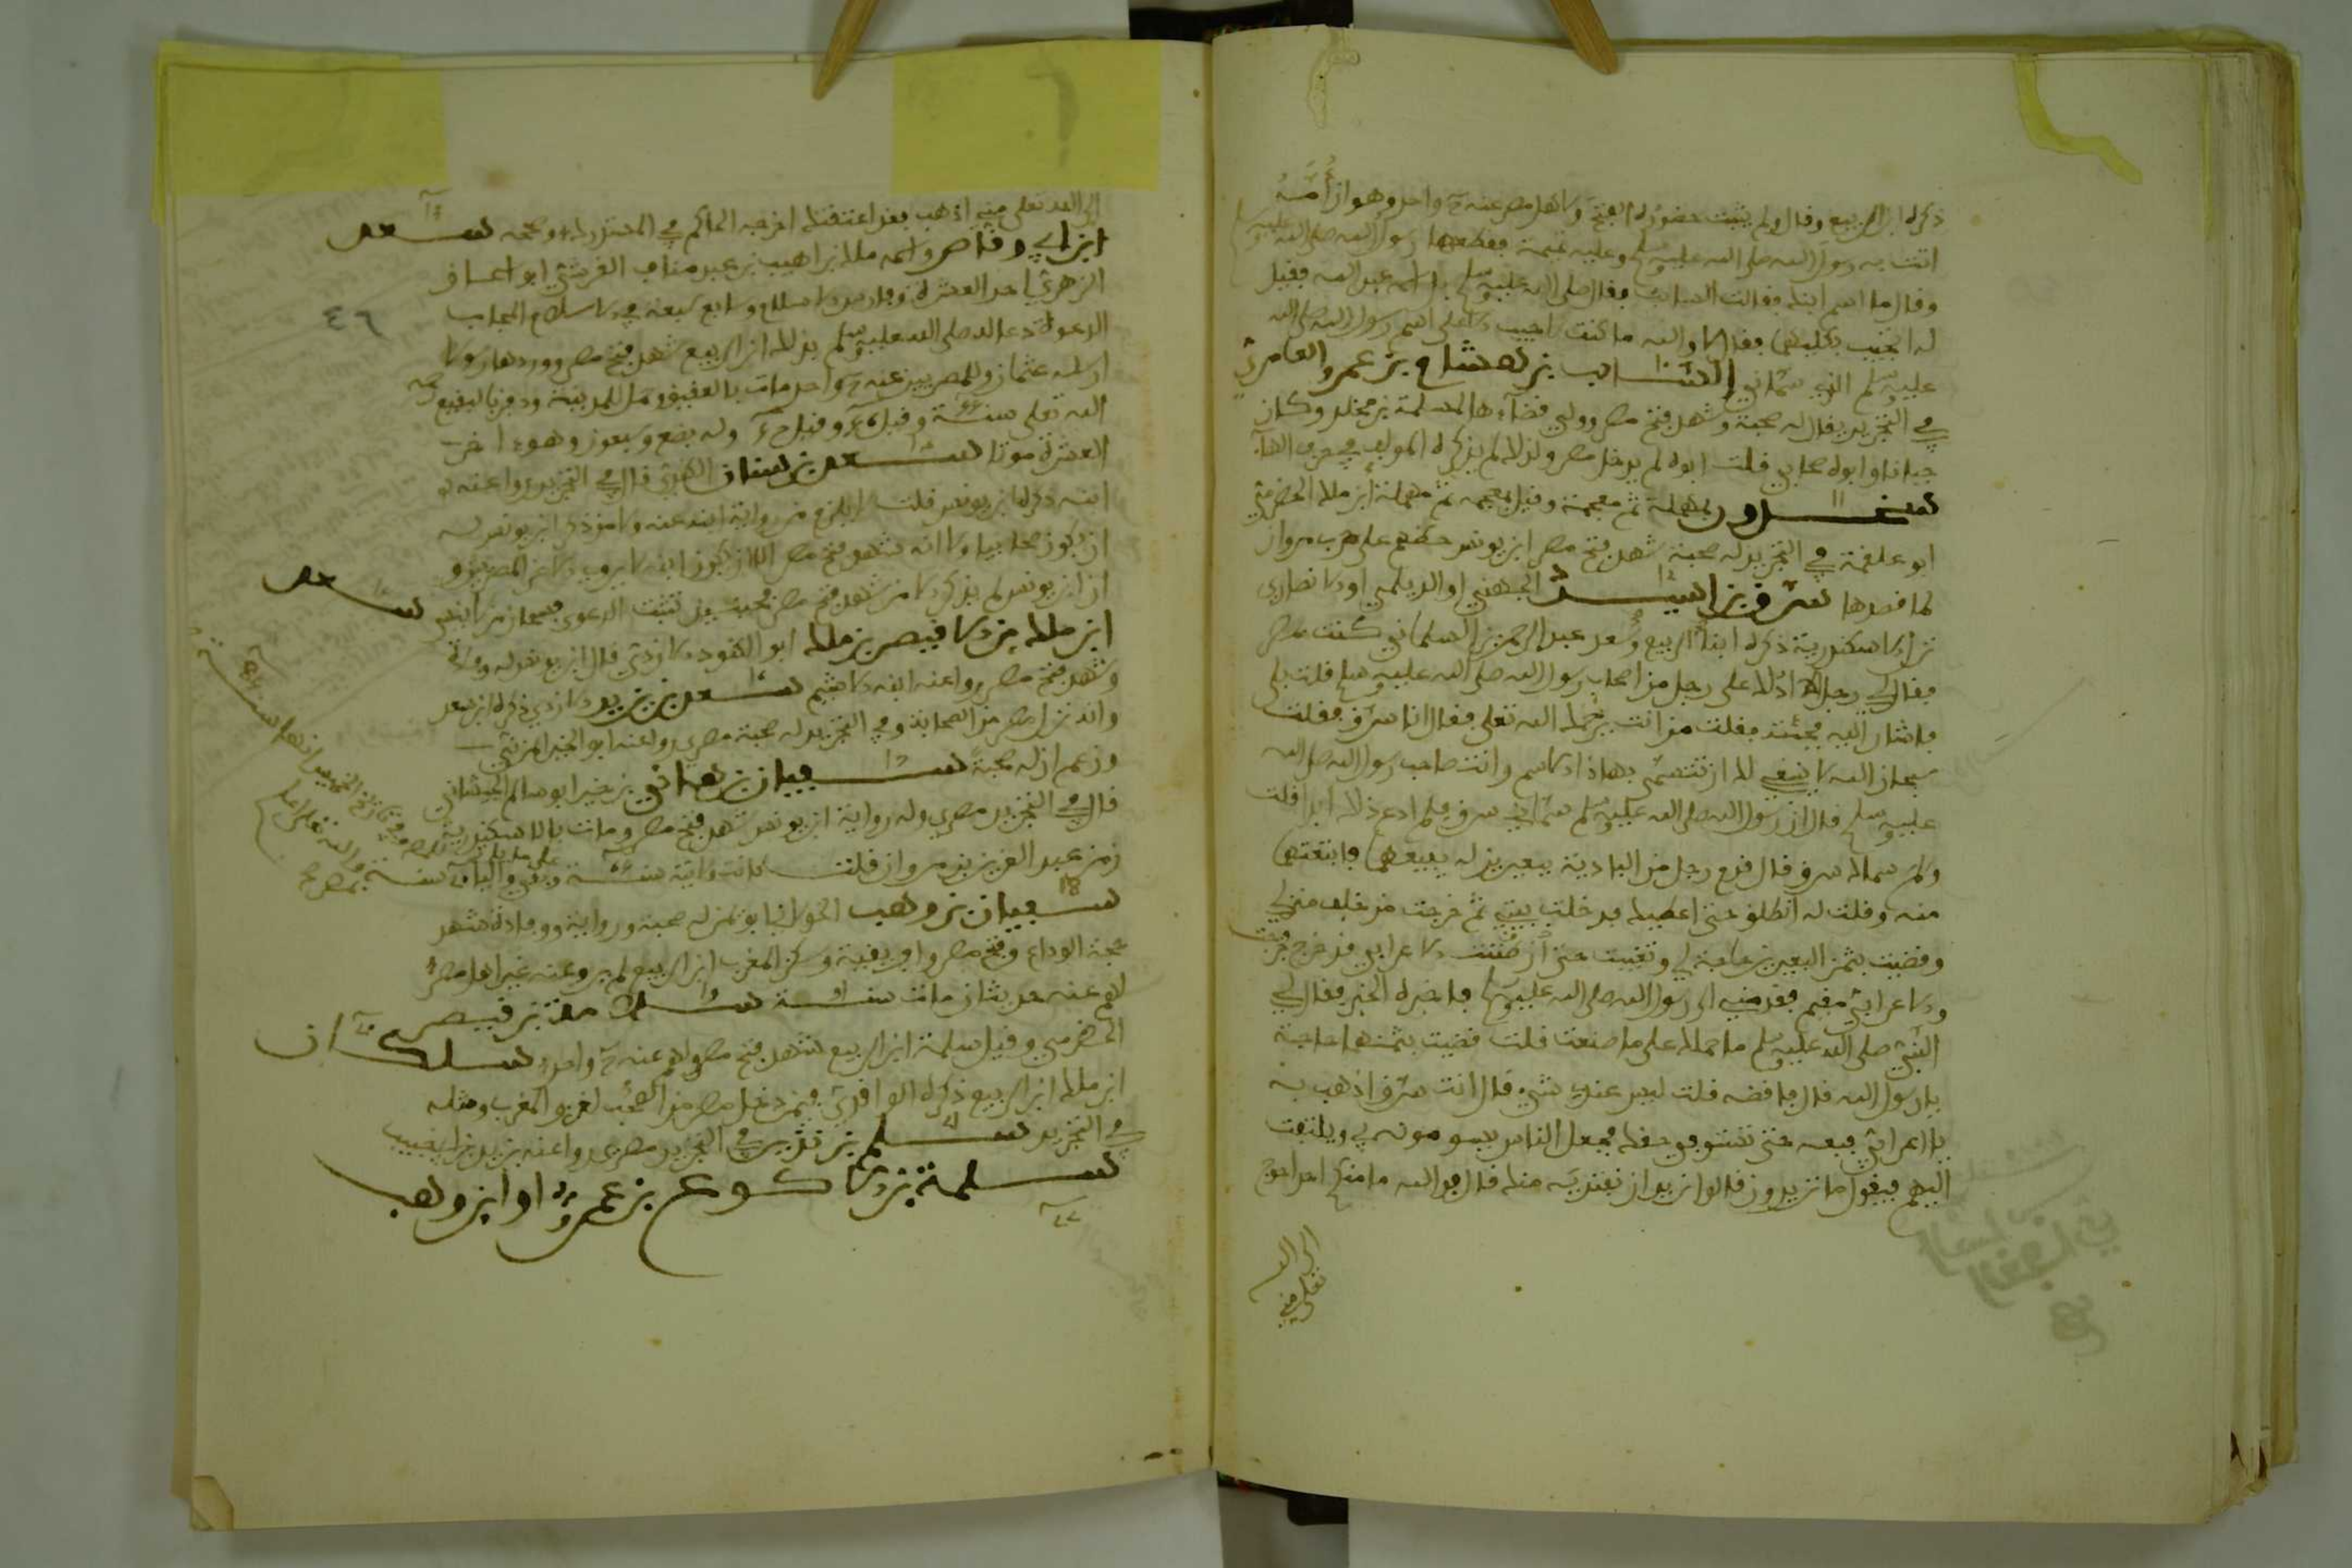 ذكره ابن الربيع وقال ولم يثبت حضوره الفتح ولاهل مصر عنه ح واحد وهو ان أمه
اتت به رسول الله صلى الله عليه وسلم وعليه تميمة فقطعها رسول الله صلى الله عليه وسلم
وقال ما اسم ابنك فقالت السائب فقال صلى الله عليه وسلم بل اسمه عبد الله فقيل
له اتجيب بكليهما فقال لا والله ما كنت لاجيب الا على اسم رسول الله صلى الله
عليه وسلم الذي سماني السائب بن هشام بن عمرو العامري
في التجريد يقال له صحبة وشهد فتح مصر وولي قضاءها لمسلمة بن مخلد وكان
جبانا وابوه صحابي قلت ابوه لم يدخل مصر ولذلك لم يذكره المولف في حرف الهاء
بمهملة ثم معجمة وقيل بمعجمة ثم مهملة ابن ملك الحضرمي
ابو علقمة في التجريد له صحبة شهد فتح مصر ابن يونس على حرب مروان
لما قصدها سرق بن اسيد الجهني او الديلمي او الانصاري
نزل الاسكندرية ذكره ابنا الربيع وسعد عبد الرحمن بن السلماني كنت بمصر
فقال لي رجل الا ادلك على رجل من اصحاب رسول الله صلى الله عليه وسلم قلت بلى
فاشار اليه فجئته فقلت من انت يرحمك الله تعلى فقال انا سرق فقلت
سبحان الله لا ينبغي لك ان تتسمى بهاذا الاسم وانت صاحب رسول الله صلى الله
عليه وسلم قال ان رسول الله صلى الله عليه وسلم سماني سرق فلم ادع ذلك ابدا قلت
ولم سماك سرق قال قدم رجل من البادية ببعيرين له يبيعهما فابتعتهما
منه وقلت له انطلق حتى اعطيك فدخلت بيتي ثم خرجت من خلف منزلي
وقضيت بثمن البعيرين حاجة لي وتغيبت حتى ان ظننت الاعرابي قد خرج فخرجت
والاعرابي مقيم فقدمني الى رسول الله صلى الله عليه وسلم فاخبره الخبر فقال لي
النبي صلى الله عليه وسلم ما حملك على ما صنعت قلت قضيت بثمنهما حاجة
يا رسول الله قال فاقضه قلت ليس عندي شيء قال انت سرق اذهب به
يا اعرابي فبعه حتى تستوفي حقك فجعل الناس يسومونه بي ويلتفت
اليهم فيقول ما تريدون قالوا نريد ان نفتديه منك قال فوالله ما منكم احد احوج
الى الله تعلى مني
الى الله تعلى مني اذهب فقد اعتقتك اخرجه الحاكم في المستدرك وصححه سعد
ابن ابي وقاص واسمه ملك بن اهيب بن عبد مناف القرشي ابو اسحاق
الزهري احد العشرة وفارس الاسلام وسابع سبعة في الاسلام المجاب
الدعوة دعا له صلى الله عليه وسلم بذلك ابن الربيع شهد فتح مصر ووردها رسولا
ارسله عثمان وللمصريين عنه ح واحد مات بالعقيق وحمل للمدينة ودفن بالبقيع
الله تعلى سنة وقيل وقيل وله بضع وسبعون وهو اخر
العشرة موتا سعد بن سنان الكندي قال في التجريد روا عنه
ابنه ذكره ابن يونس قلت لا يلزم من رواية ابنه عنه ولا من ذكر ابن يونس له
ان يكون صحابيا ولا انه شهد فتح مصر الا ان يكون ابنه لا يروي الا عن المصريين و
ان ابن يونس لم يذكر الا من شهد فتح مصر فحينئذ تثبت الدعوى سعد
ابن ملك بن الاقيصر بن ملك ابو الكنود الازدي قال ابن يونس له وفادة
وشهد فتح مصر روا عنه ابنه الاشيم سعد بن يزيد الازدي ذكره ابن سعد
وانه نزل مصر من الصحابة وفي التجريد له صحبة مصري روا عنه ابو الخير اليزني
وزعم ان له صحبة سفيان بن هاني بن خير ابو سالم الجيشاني
قال في التجريد مصري وله رواية ابن يونس شهد فتح مصر ومات بالاسكندرية
زمن عبد العزيز بن مروان قلت كانت ولايته سنة
سفيان بن وهب الخولاني ابو ايمن له صحبة ورواية ووفادة شهد
حجة الوداع وفتح مصر وافريقية وسكن المغرب ابن الربيع لم يرو عنه غير اهل مصر
لهم عنه حديثان مات سنة سلامة بن قيصر
الحضرمي وقيل سلمة ابن الربيع شهد فتح مصر ولهم عنه ح واحد سلكان
ابن ملك ابن الربيع ذكره الواقدي فيمن دخل مصر من الصحب لغزو المغرب ومثله
في التجريد سلم بن نذير في التجريد مصري روا عنه يزيد بن ابي حبيب
سلمة بن الاكوع بن عمرو او ابن وهب
٤٦